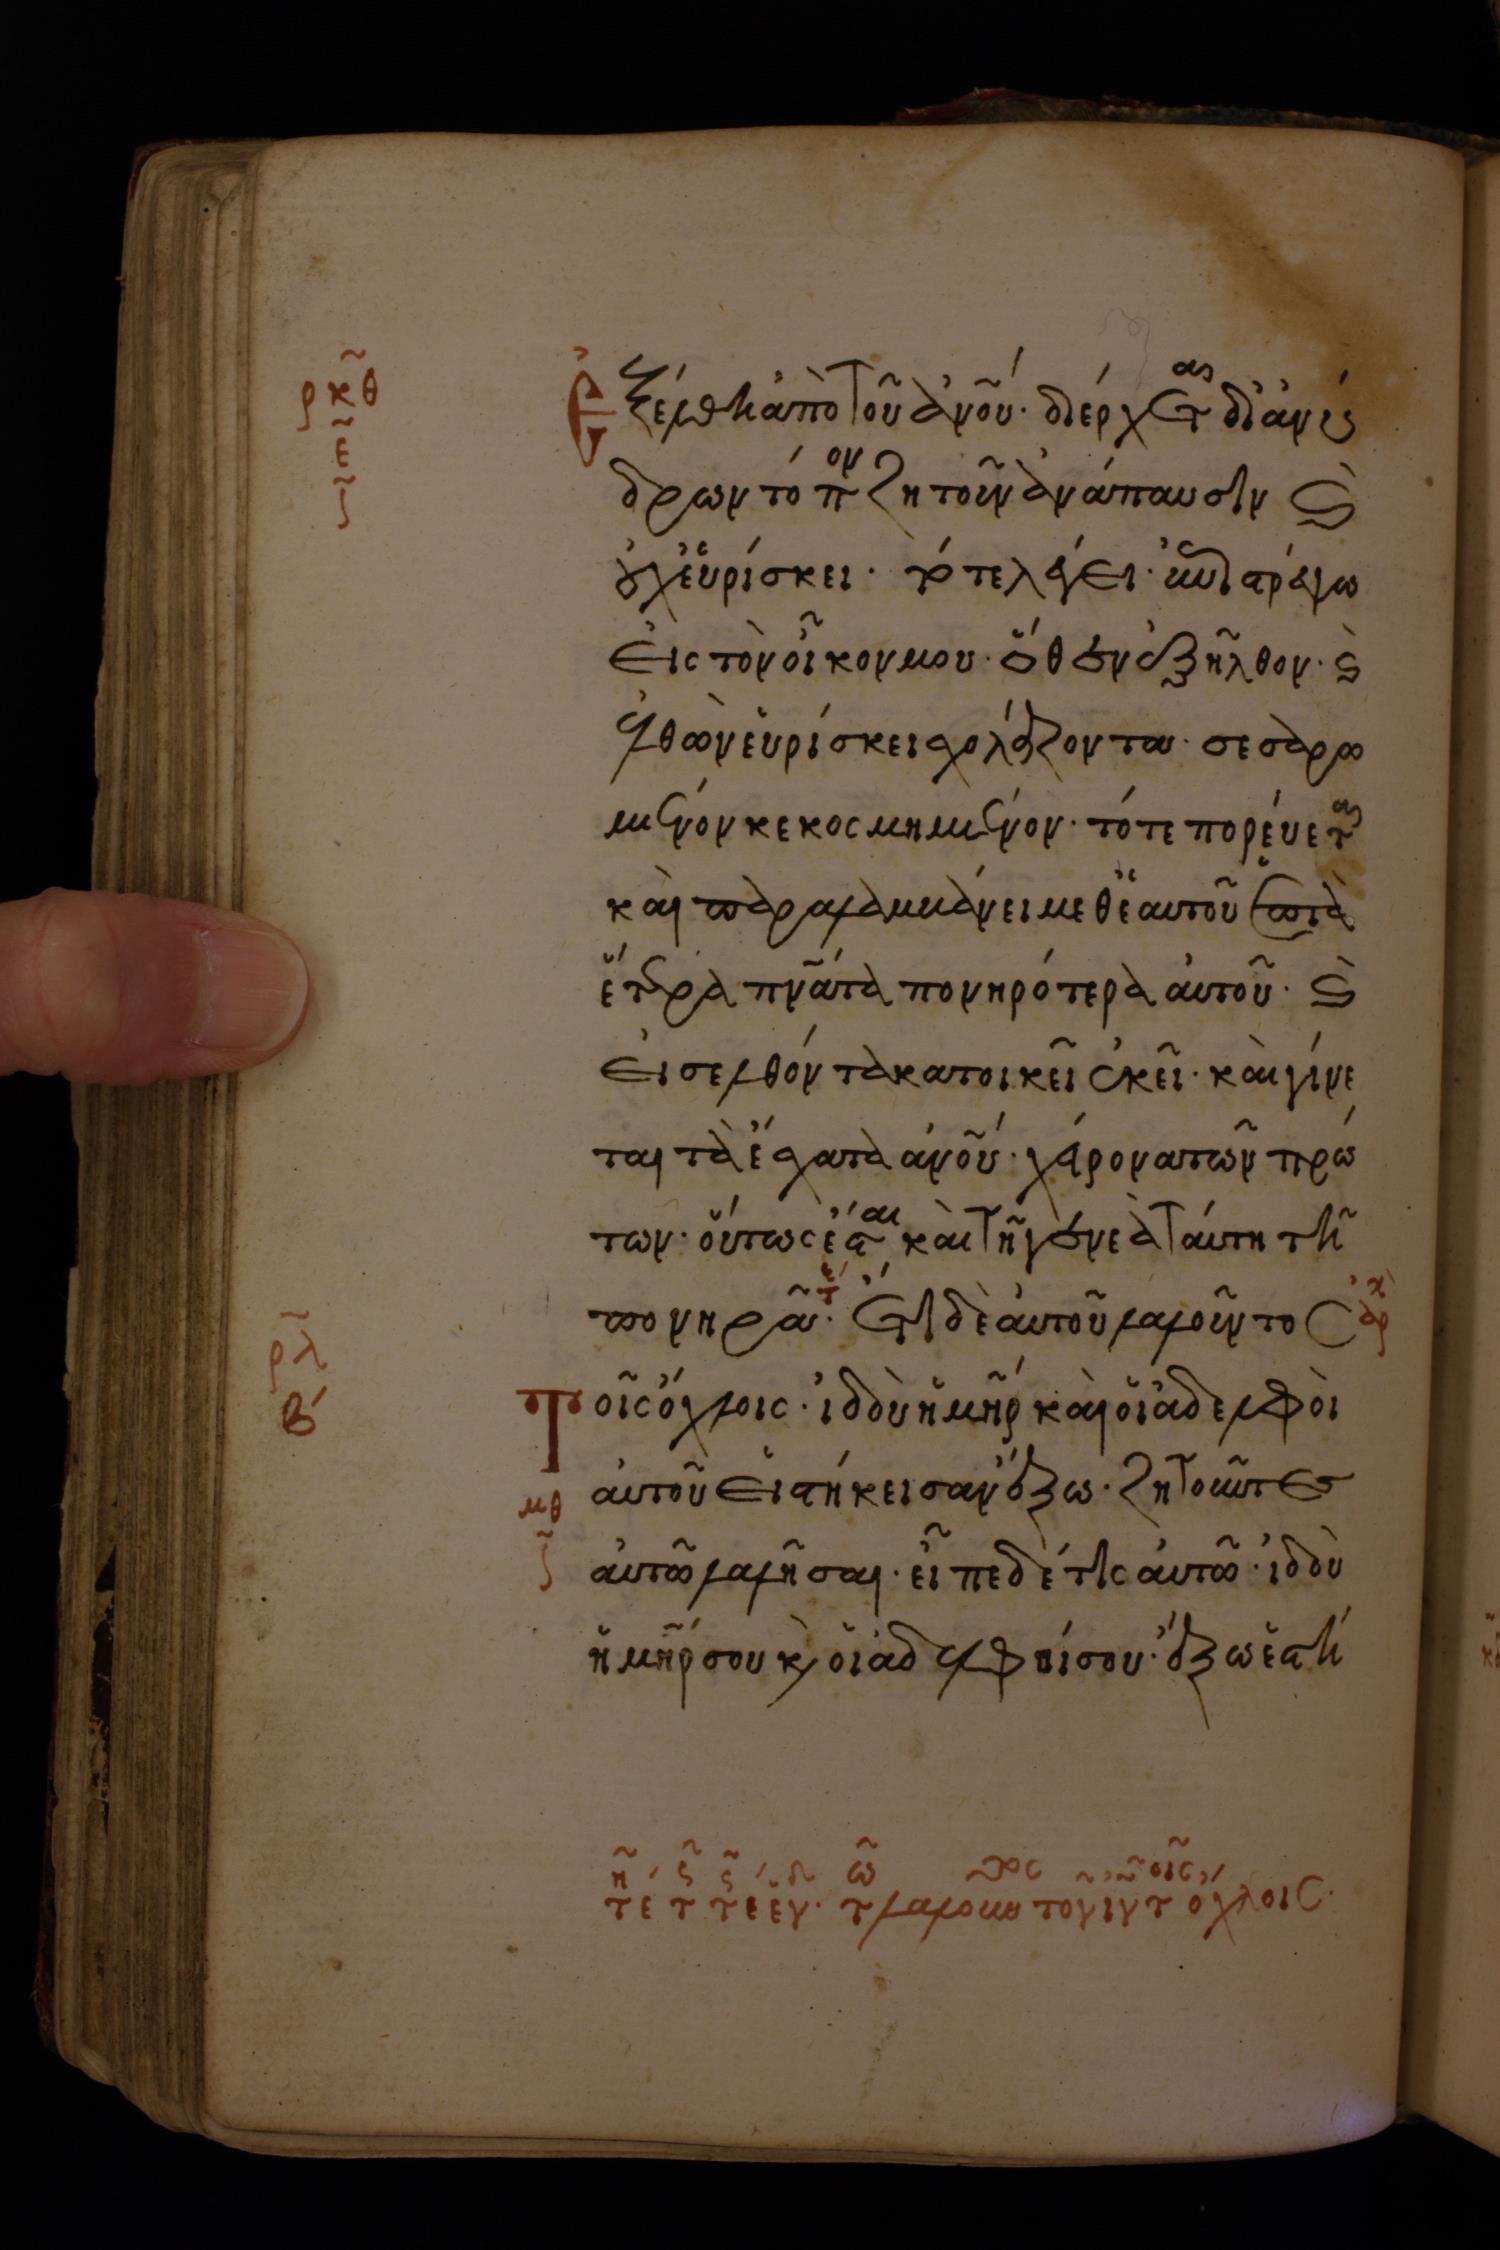 ρκθ
ε
Ἐξέλθη ἀπὸ τοῦ ἀνοῦ· διέρχεται δι' ἀνύ
δρων τόπον ζητοῦν ἀνάπαυσιν καὶ
οὐχ εὑρίσκει· τότε λέγει· ὑποστρέψω
εἰς τὸν οἶκον μου· ὅθεν ἐξῆλθον· καὶ
ἐλθὼν εὑρίσκει σχολάζοντα· σεσαρω
μένον κεκοσμημένον· τότε πορεύεται
καὶ παραλαμβάνει μεθ' ἑαυτοῦ ἑπτὰ
ἕτερα πνατα πονηρότερα αὐτοῦ· καὶ
εἰσελθόντα κατοικεῖ ἐκεῖ· καὶ γίνε
ται τὰ ἔσχατα ἀνοῦ· χείρονα τῶν πρώ
των· οὕτως ἔσται καὶ τῇ γενεᾷ ταύτη τῆ
πονηρᾶ· Ἔτι δὲ αὐτοῦ λαλοῦντος ἀρχ
ρλ
β
Τοῖς ὄχλοις· ἰδοὺ ἡ μηρ καὶ οἱ ἀδελφοὶ
αὐτοῦ εἰστήκεισαν ἔξω· ζητοῦντες
μθ
αὐτῶ λαλῆσαι· εἶπε δέ τις αὐτῶ· ἰδοὺ
ἡ μηρ σου καὶ οἱ ἀδελφοί σου· ἔξω ἑστή
λαλοῦντος τοῦ ιυ τοῖς ὄχλοις·